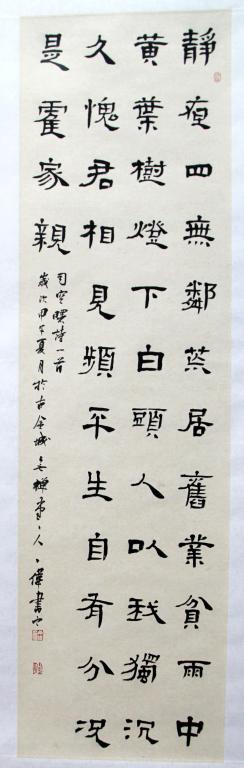 靜夜四無鄰荒居舊業貧雨中
黃葉樹燈下白頭人以我獨沉
久愧君相見頻平生自有分況
是霍家親
司空曙詩一首
歲次甲午夏月於古金城禪人偉書